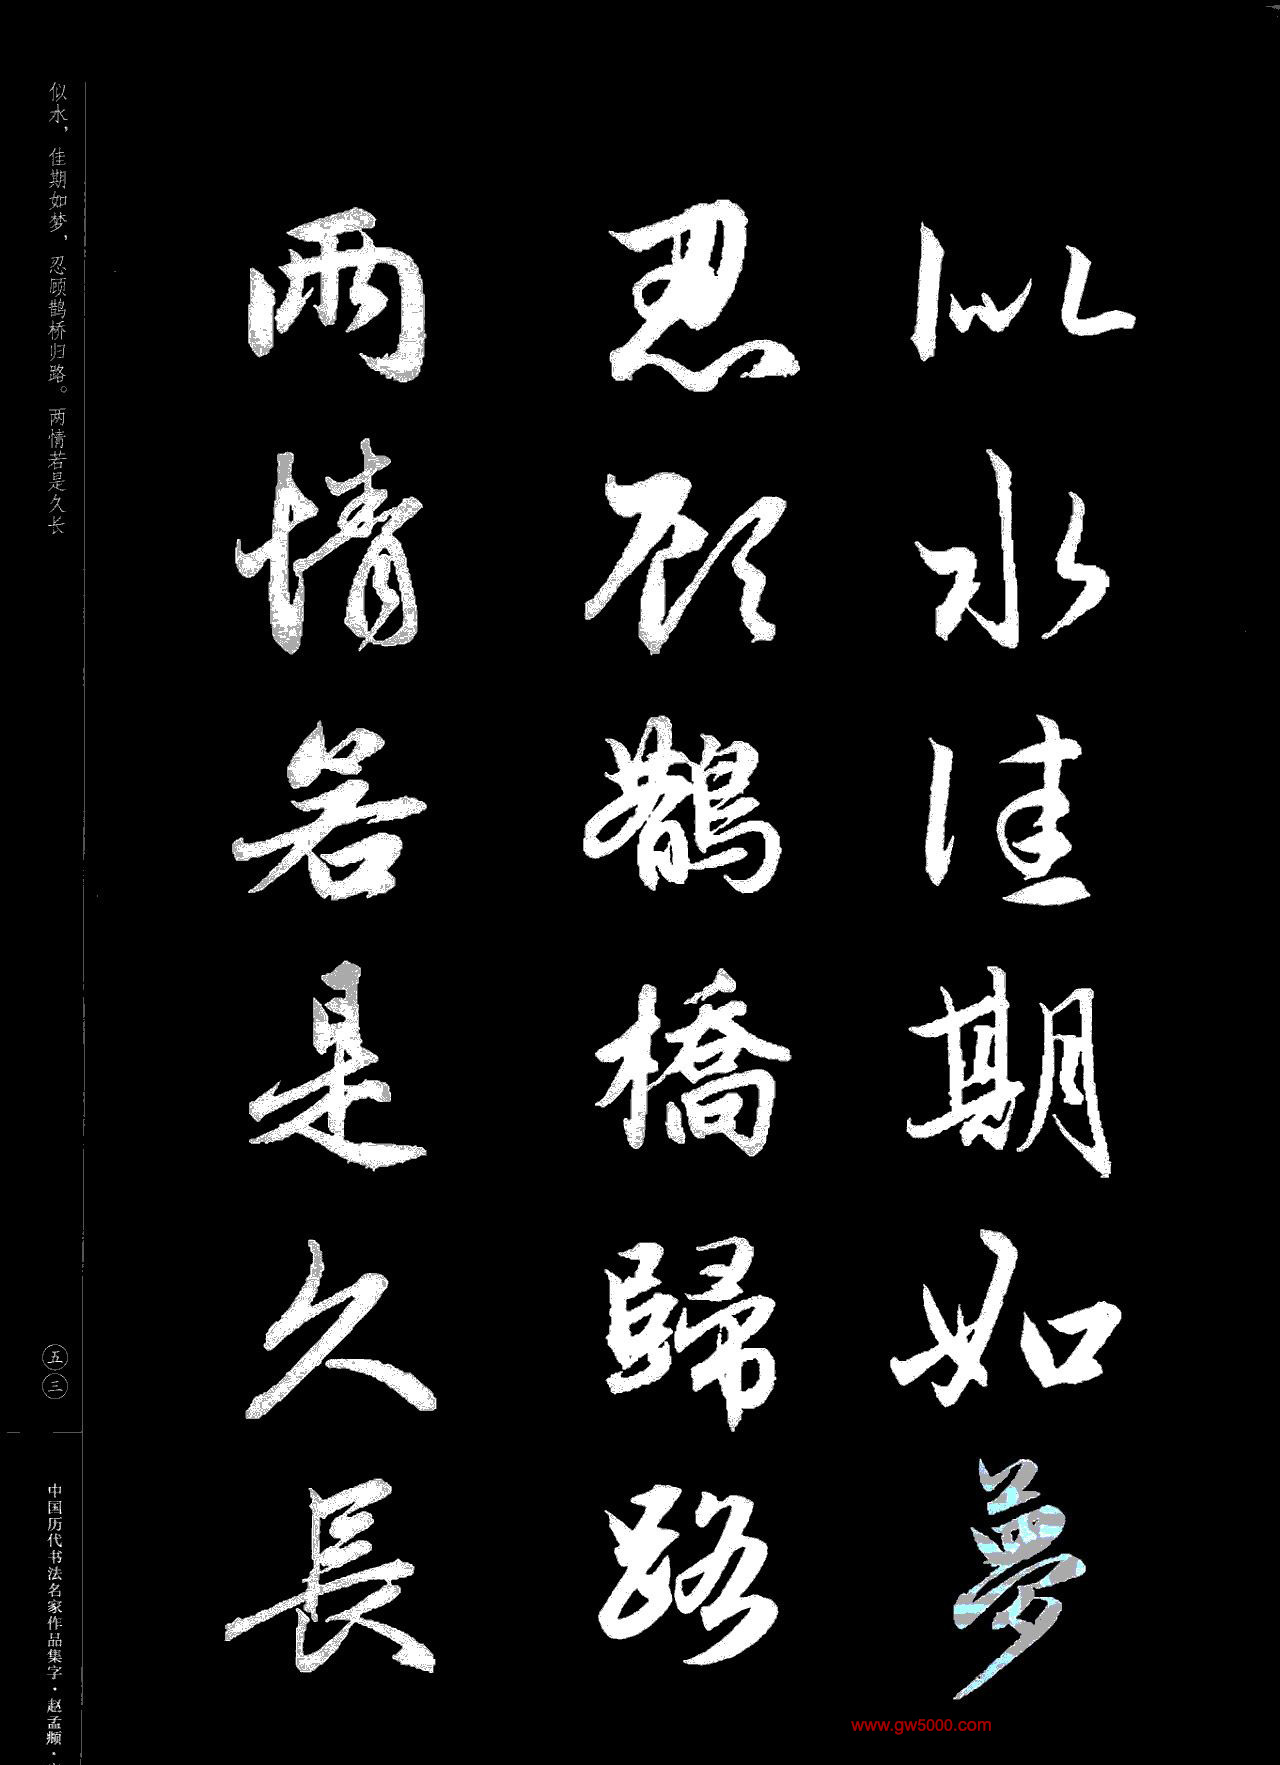 似水佳期如夢
忍顾鹊橋歸路
兩情若是久長
似水，佳期如梦，忍顾鹊桥归路。两情若是久长
五三
中国历代书法名家作品集字·赵孟頫·
www.gw5000.com